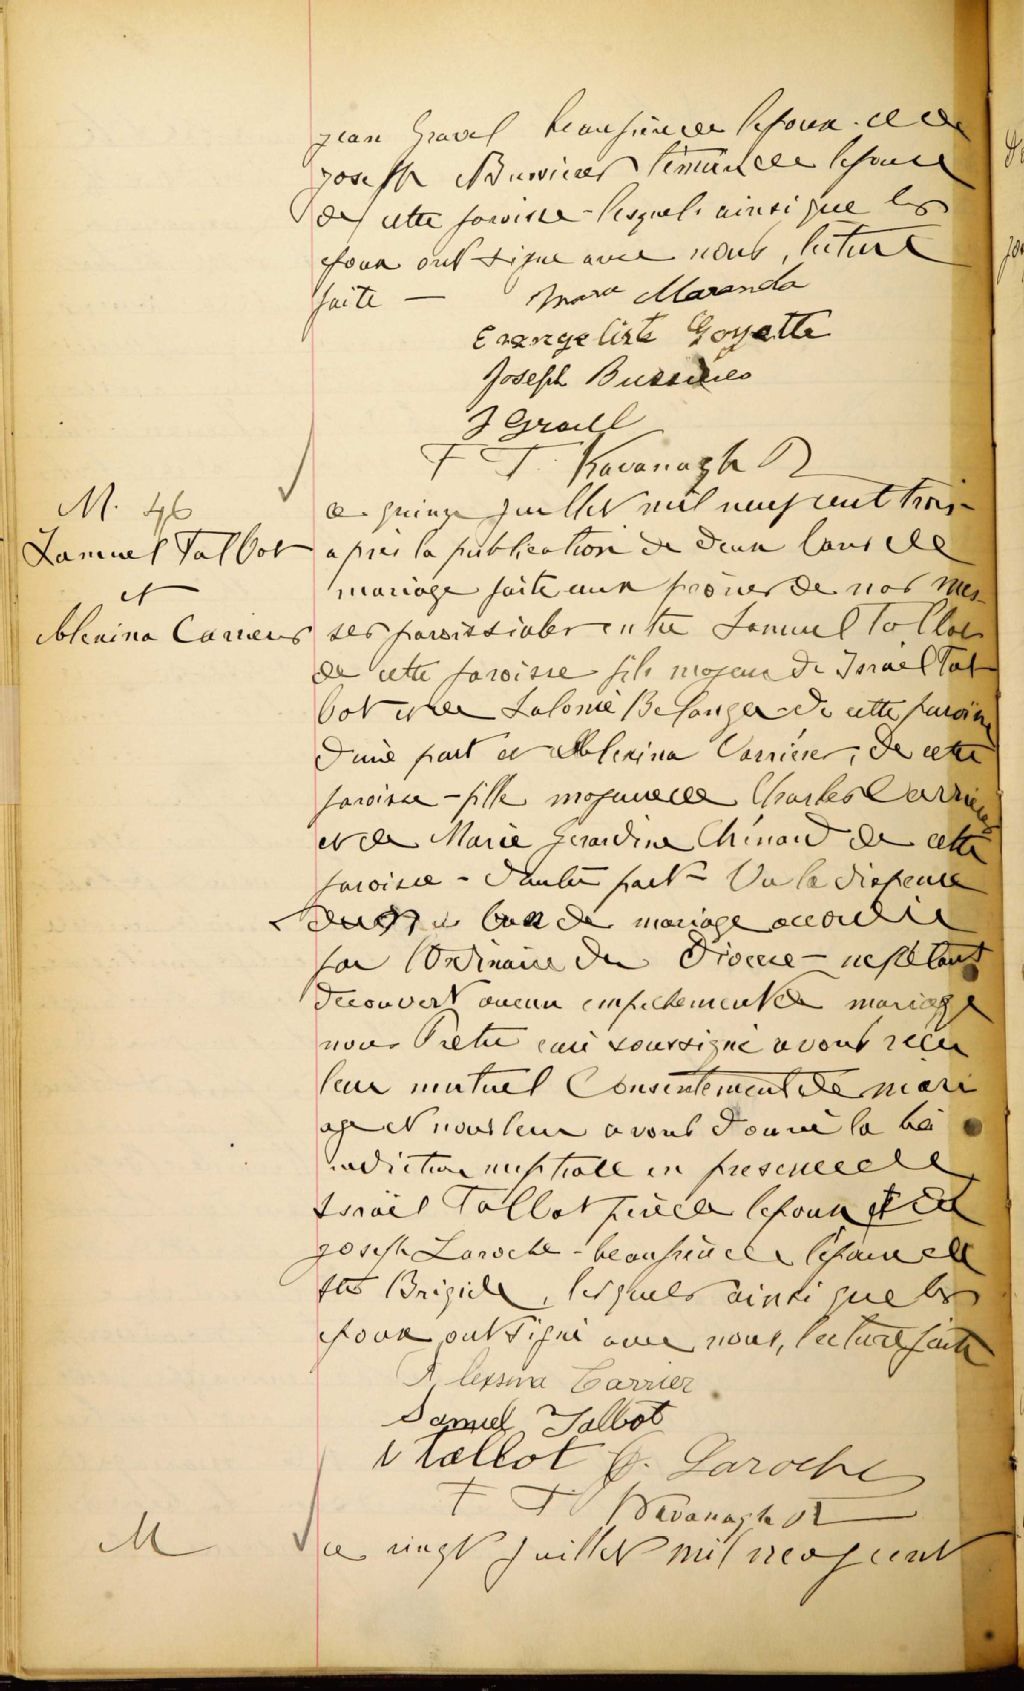 Jean Gravel beaufrère de l'epoux et de
Joseph Bussieres témoin de l'epouse
de cette paroisse - lesquels ainsi que les
epoux ont signé avec nous, lecture
faite —
Maranda
Evangeliste Goyette
Joseph Bussieres
J Gravel
F T Kavanagh
M. 46
Samuel Talbot
et
Alexina Carriers
ce quinze Juillet mil neuf cent trois
après la publication de deux bans de
mariage faite aux prônes de nos mes-
ses paroissiales entre Samuel Talbot
de cette paroisse fils majeur de Israël Tal
bot et de Salomé Belanger de cette paroisse
d'une part et Alexina Carrier, de cette
paroisse - fille majeure de Charles Carrier
et de Marie Gerardine Chinard de cette
paroisse - d'autre part - Vu la dispense
ban de mariage accordée
par l'Ordinaire du Diocèse - ne s'étant
découvert aucun empechement de mariage
nous Prêtre curé soussigné avons reçu
leur mutuel Consentement de mari
age et nous leur avons donné la bé
nédiction nuptiale en presence de
Israël Talbot père de l'epoux et de
Joseph Laroche - beaufrère de l'epouse de
Ste Brigide, lesquels ainsi que les
epoux ont signé avec nous, lecture faite
Alexina Carrier
Samuel Talbot
I Talbot J. Laroche
F T Kavanagh
M
ce vingt Juillet mil neuf cent